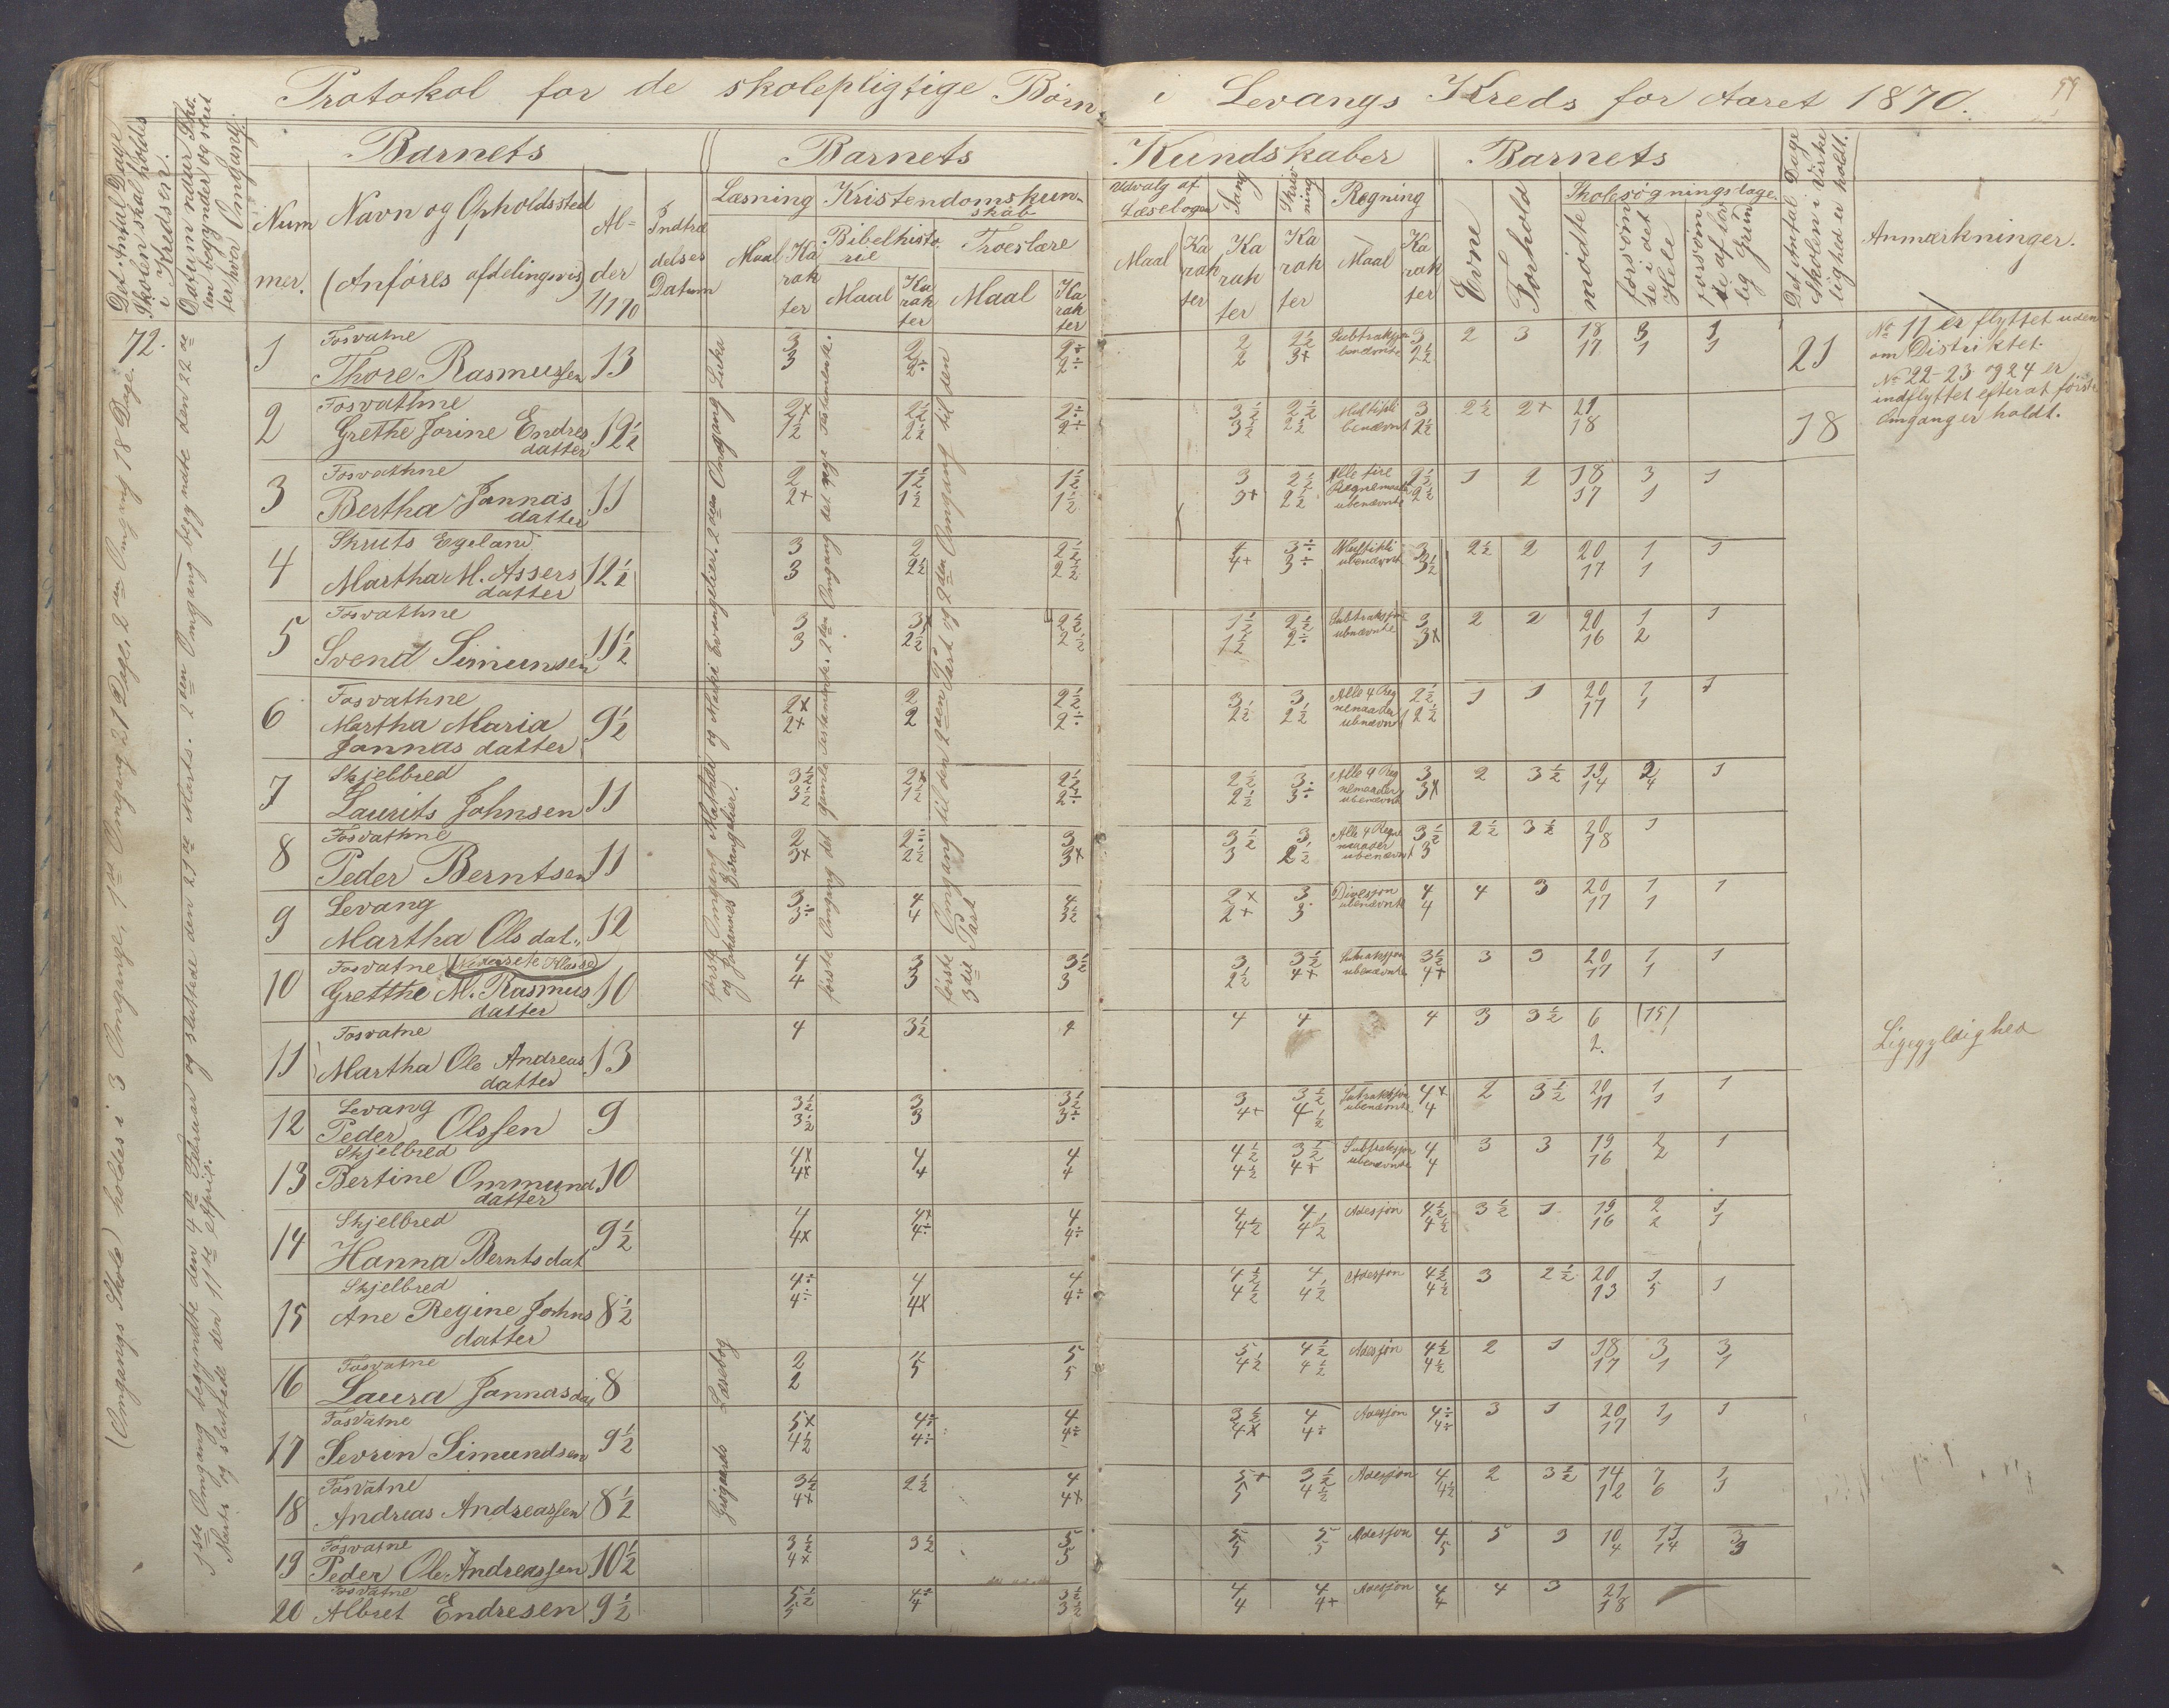 Protokol for de skolepligtige Børn i Levangs Kreds for Aaret 1870.
59
Det Antal Dage
Skolen skal holdes
i Kredsen.
Datum naar Sko-
len begynder og slut
ter hver Omgang.
Barnets
Num
mer.
Navn og Opholdssted
(Anføres afdelingsvis)
Al-
der
1/1 70
Indtræ
delses
Datum
Barnets Kundskaber
Læsning
Maal
Ka
rak
ter
Kristendomskun-
skab
Bibelhisto
rie
Maal
Ka
rak
ter
Troeslære
Maal
Ka
rak
ter
Udvalg af
Læsebogen
Maal
Ka
rak
ter
Sang
Ka
rak
ter
Skriv
ning
Ka
rak
ter
Regning
Maal
Ka
rak
ter
Barnets
Evne
Forhold
Skolesøgningsdage.
mødte
forsøm
te i det
Hele
forsøm
te af lov
lig Grun
Det Antal Dage
Skolen i Virke
lighed er holdt.
Anmærkninger.
72.
(Omgangs Skole) holdes i 3 Omgange, 1ste Omgang 21 Dage, 2den Omgang 18 Dage.
1ste Omgang begyndte den 4de Februar og sluttede den 21de Marts. 2den Omgang begyndte den 22de
Marts og sluttede den 11te April.
første Omgang Mathæi og Marki Evangelier. 2den Omgang Luka
og Johannes Evangelier.
første Omgang det gamle Testamente. 2den Omgang det nye Testamente.
første Omgang til den 2den Part og 2den Omgang til den
3die Part
Læsebog
1 Fosvatne
Thore Rasmussen 13 3 2 2÷ 2 2½ Subtraksjon 3 2 3 18 3 1 21
3 2÷ 2÷ 2 3+ benævnte 2½ 17 1 1
2 Fosvathne
Grethe Jorine Endres
datter 12½ 2+ 2½ 2÷ 3½ 2½ Multipli 3 2½ 2+ 21 18
1½ 2½ 2÷ 3½ 2½ benævnt 2½ 18
3 Fosvathne
Bertha Jannas
datter 11 2 1½ 1½ 3 2½ Alle fire 2½ 1 2 18 3 1
2+ 1½ 1½ 3+ 2½ Regnemaader 2½ 17 1
ubenævnte
4 Skruts Egeland
Martha M. Assers
datter 12½ 3 2 2½ 4 3÷ Multipli 3 2½ 2 20 1 1
3 2½ 2½ 4+ 3÷ ubenævnt 3½ 17 1
5 Fosvathne
Svend Simunsen 11½ 3 3+ 2½ 1½ 2½ Subtraksjon 3 2 2 20 1 1
3 2½ 2½ 1½ 2÷ ubnævnte 3+ 16 2
6 Fosvathne
Martha Maria
Jannas datter 9½ 2+ 2 2½ 3 3 Alle 4 Reg 2½ 1 1 20 1 1
2+ 2 2÷ 2½ 2½ nemaader 2½ 17 1
ubnævnt
7 Skjelbred
Laurits Johnsen 11 3½ 2+ 2½ 2½ 3 Alle 4 Reg 3 2 3½ 19 2 1
3½ 1½ 2÷ 2½ 3÷ nemaader 3+ 14 4
ubenævnt
8 Fosvathne
Peder Berntsen 11 2 2÷ 3 3½ 3 Alle 4 Regne 3½ 2½ 3½ 20 1
3+ 2½ 3+ 3 2½ maader 3 18
ubenævnt
9 Levang
Martha Olsdat„ 12 3 4 4 2+ 3 Divesjon 4 4 3 20 1 1
3÷ 4 3½ 2+ 3 ubenævnte 4 17 1
10 Fosvatne (Nederste Klasse)
Gretthe M. Rasmus
datter 10 4 3 3½ 3 3½ Subtraksjon 3½ 3 3 20 1 1
4 3 3 2½ 4+ ubenævnte 4+ 17 1
11 Fosvatne
Martha Ole Andreas
datter 13 4 3½ 4 4 4 4 3 3½ 6 (15)
2.
12 Levang
Peder Olssen 9 3½ 3 3½ 3 3½ Subtraksjon 4+ 2 3½ 20 1 1
3½ 3 3÷ 4+ 4½ ubenævnte 4 17 1
13 Skjelbred
Bertine Ommund
datter 10 4+ 4 4 4½ 3½ Subtraksjon 4 3 3 19 2 1
4+ 4 4 4½ 4+ ubenævnte 4 16 2
14 Skjelbred
Hanna Berntsdat 9½ 4 4+ 4 4 4 Adesjon 4½ 3½ 1 19 2 1
4+ 4÷ 4÷ 4½ 4½ 4½ 16 2 1
15 Skjelbred
Ane Regine Johns
datter 8½ 4÷ 4 4 4½ 4 Adesjon 4½ 3 2½ 20 1 1
4÷ 4+ 4÷ 4½ 4½ 4½ 13 5
16 Fosvatne
Laura Jannasdat 8 2 5 5 4½ Adesjon 4½ 2 1 18 3 3
2 5 5 4½ 4½ 4½ 17 1 1
17 Fosvatne
Sevrin Simundsen 9½ 5+ 4÷ 4 3½ 4 Adesjon 4÷ 3 1 20 1 1
4½ 4÷ 4÷ 4+ 4÷ 4÷ 17 1
18 Fosvatne
Andreas Andreassen 8½ 3½ 2½ 4 5+ 3½ Adesjon 4 2 3½ 14 7 1
4+ 4+ 5 4½ 4½ 12 6 1
19 Fosvatne
Peder Ole Andreassen 10½ 3½ 3½ 5 5 5 Adesjon 4 5 3 10 11 3
4+ 5 5 5 5 4 14 3
20 Fosvatne
Albret Endresen 9½ 5½ 4÷ 3½ 4 4 Adesjon 4 4 3 21
5 4 3½ 4 4+ 4 18
No 11 er flyttet uden-
om Distriktet.
No 22-23 og 24 er
indflyttet efterat første
Omgang er holdt.
Ligegyldighed